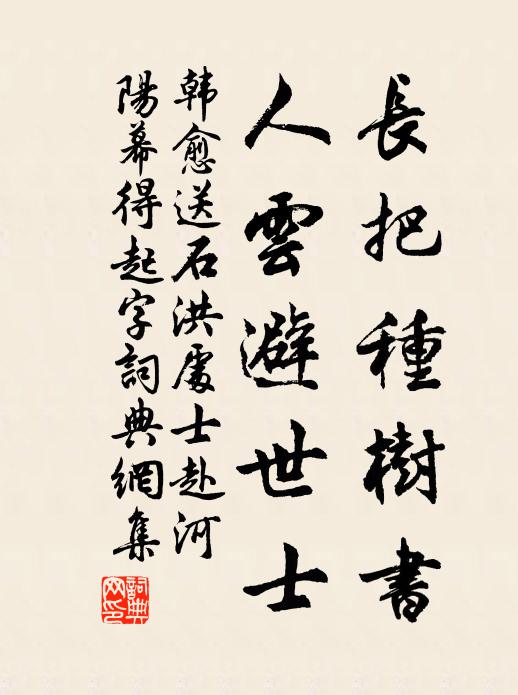 長把種樹書
人雲避世士
韩愈送石洪處士赴河
陽幕得起字詞典網集
詞典网印